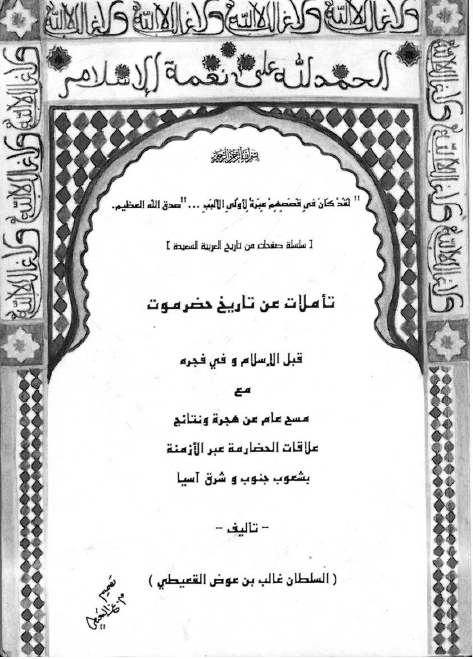 ولا غالب الا الله ولا غالب الا الله ولا غالب الا الله ولا غالب الا الله
الحمد لله على نعمة الإسلام
بسم الله الرحمن الرحيم
" لقد كان في قصصهم عبرة لأولي الألبب ..." صدق الله العظيم.
[ سلسلة صفحات من تاريخ العربية السعيدة ]
تأملات عن تاريخ حضرموت
قبل الإسلام و في فجره
مع
مسح عام عن هجرة ونتائج
علاقات الحضارمة عبر الأزمنة
بشعوب جنوب و شرق آسيا
- تأليف -
( السلطان غالب بن عوض القعيطي )
تصميم
ولا غالب الا الله ولا غالب الا الله ولا غالب الا الله
ولا غالب الا الله ولا غالب الا الله ولا غالب الا الله